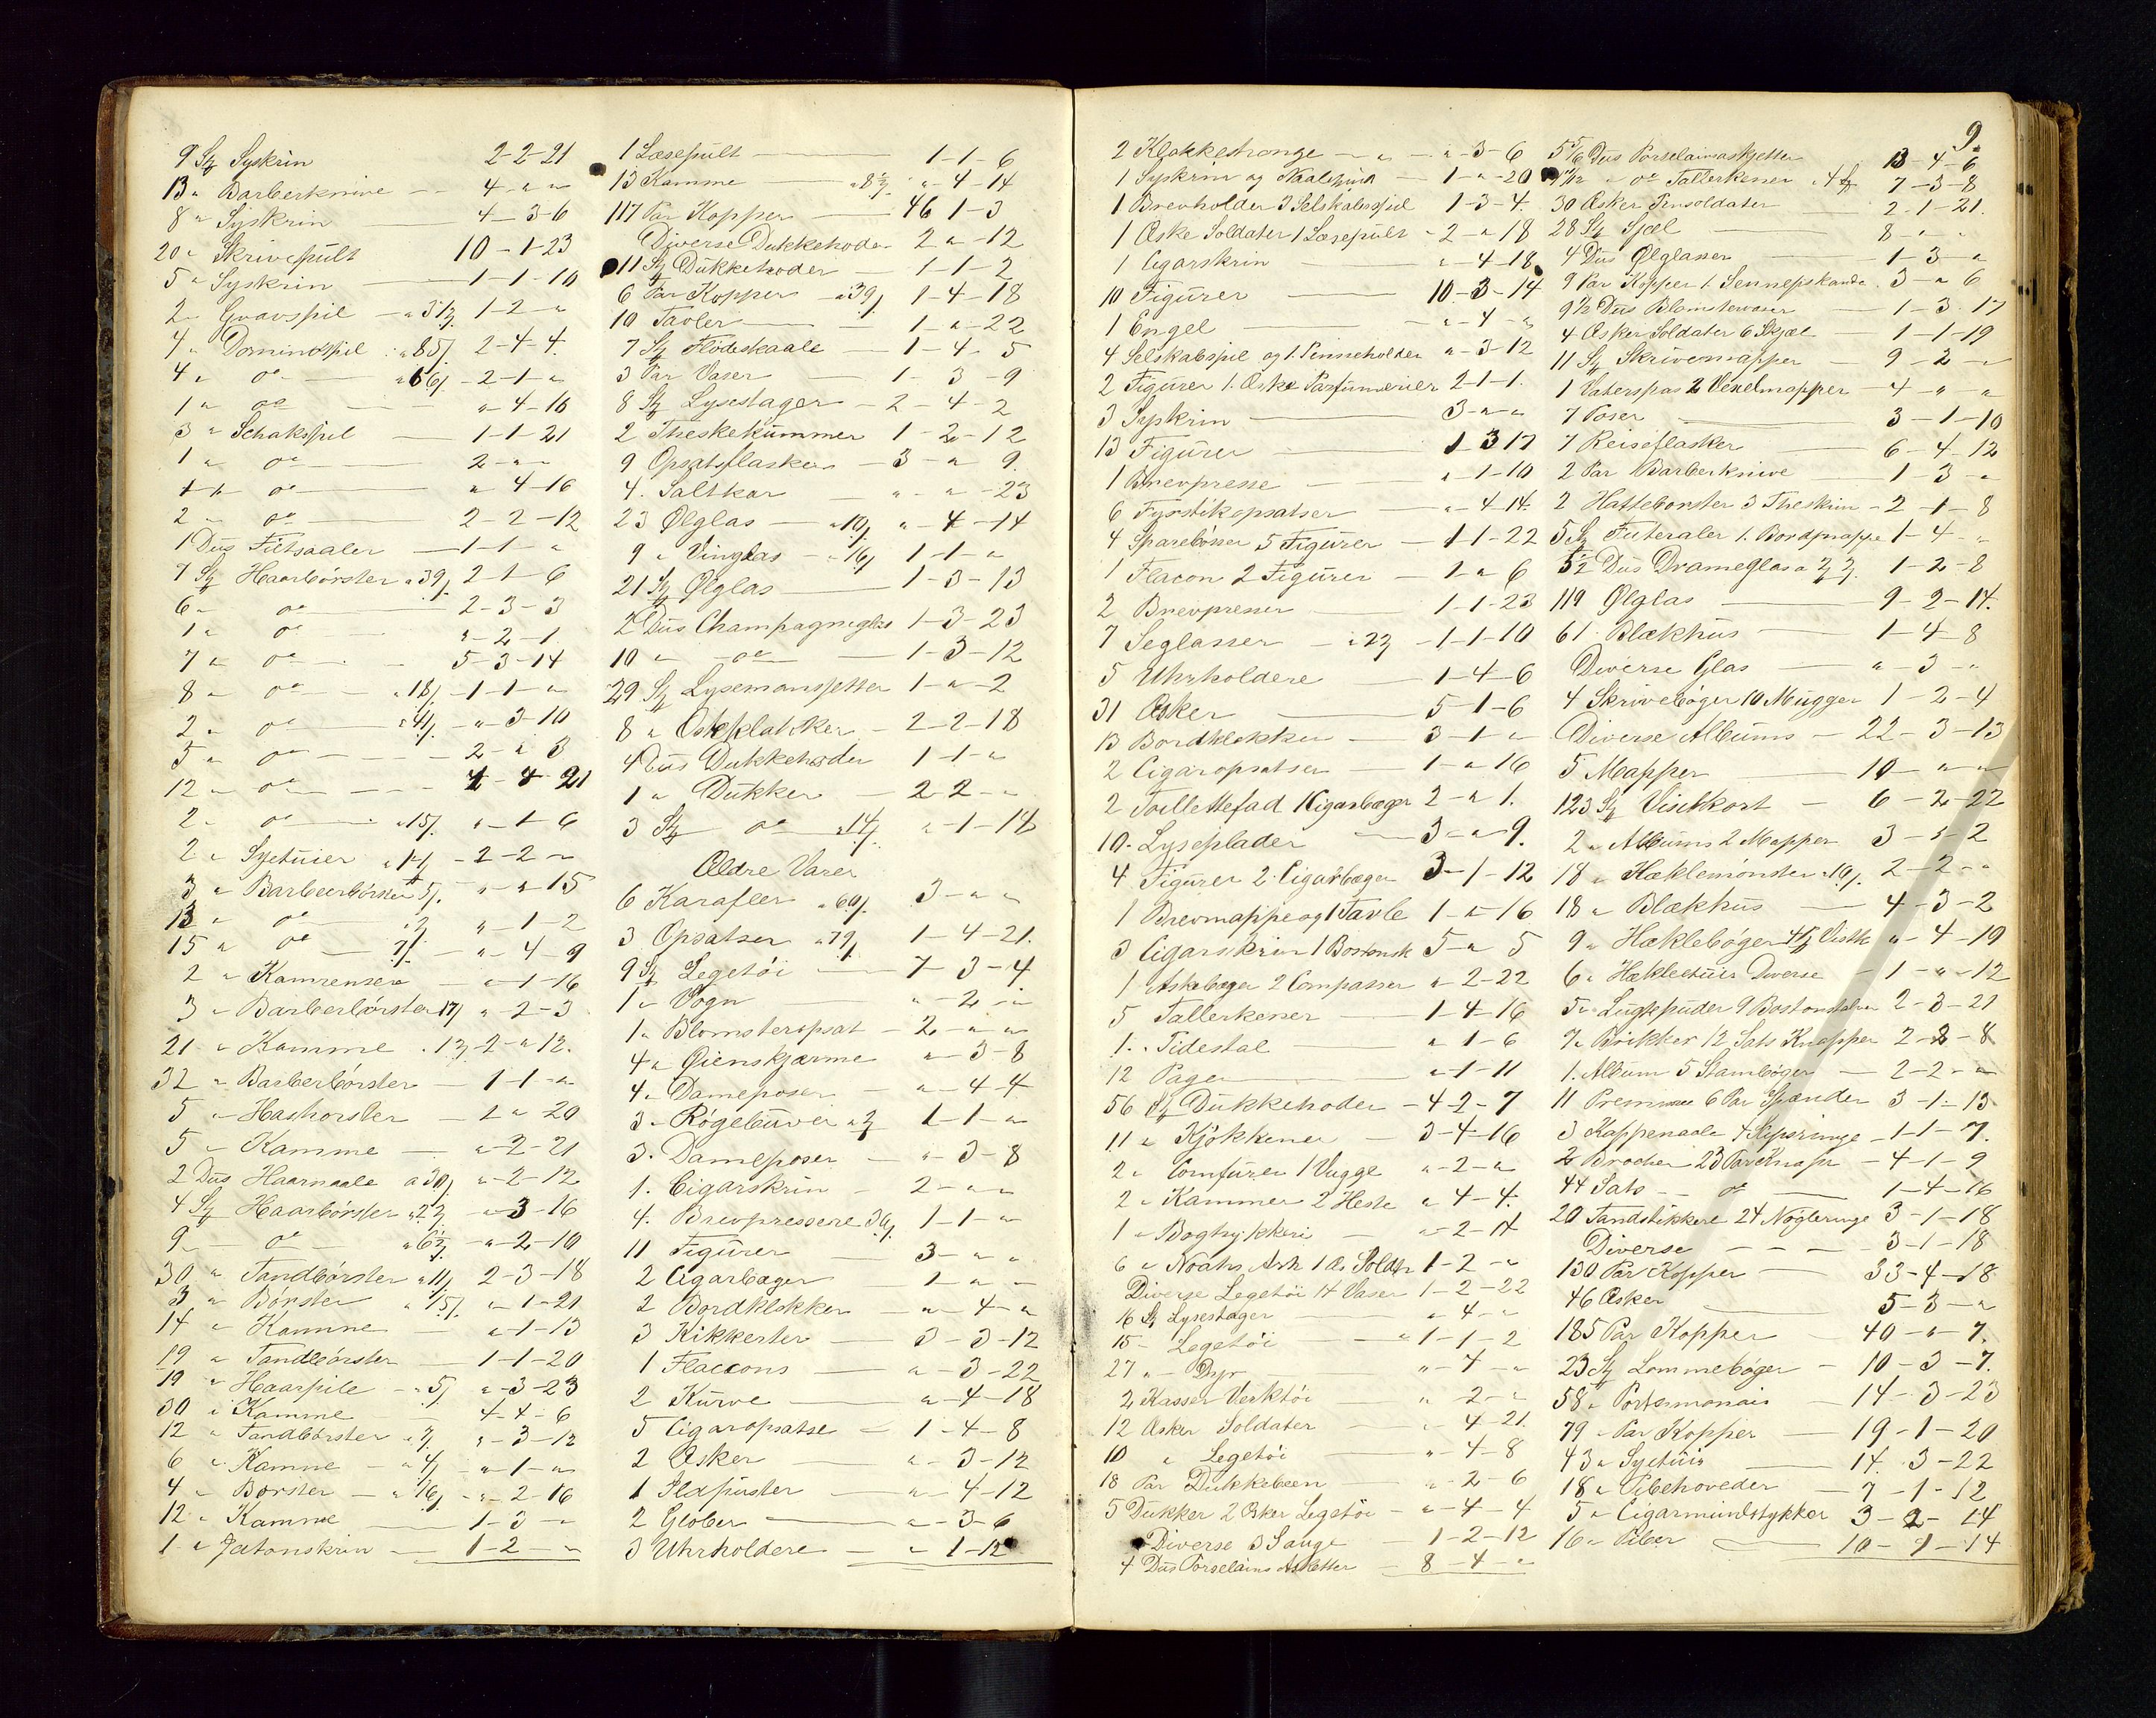 9 St Syskrin 2-2-21
13 " Barberknive 4 - " - "
8 " Syskrin 4-3-6
20 " Skrivepult 10-1-23
5 " Syskrin 1-1-10
2 " Gnavspil 1-2-"
4 " Dominospil 2-4-4
4 " do 2-1-"
1 " do "-4-16
3 " Schakspil 1-1-21
1 " do 2-"-"
do "-4-16
2 " do 2-2-12
1 Dus Filtsaaler 1-1-"
7 St Haarbörster a 39 2-1-6
6 " do 2-3-3
1 " do "-2-1
7 " do 5-3-14
8 " do a 18 1-1-"
2 " do a 41 "-3-10
5 " do 2-"-3
12 " do 4-4-21
2 " do a 15 "-1-6
2 " Syetuier 2-2-"
3 " Barberbörster a 5 "-"-15
13 " do "-1-2
15 " do "-4-9
2 " Kamrensere "-1-16
3 " Barberbörster 17 "-2-3
21 " Kamme 2-"-12
32 " Barberbörster 1-1-"
5 " 1-"-20
5 " Kamme "-2-21
2 Dus Haarnaale a 30 "-2-12
4 St Haarbörster "-3-16
9 " do "-2-10
30 " Tandbörster a 11 2-3-18
3 " Börster a 15 "-1-21
14 " Kamme "-1-13
19 " Tandbörster 1-1-20
19 " Haarpile a 5 "-3-23
30 " Kamme 4-4-6
12 " Tandbörster "-3-12
6 " Kamme a 4 "-1-"
4 " Börster a 16 "-2-16
12 " Kamme 1-3-"
1 " Jetonskrin 1-2-"
1 Læsepult 1-1-6
13 Kamme "-4-14
117 Par Kopper 46 1-3
Diverse Dukkehoder 2 " -12
11 St Dukkehoder 1-1-2
6 Par Kopper a 39 1-4-18
10 Tavler 1-"-22
7 St Flödeskaale 1-4-5
3 Par Vaser 1-3-9
8 St Lysestager 2-4-2
2 Theskekummer 1-2-12
9 Opsatsflasker 3-"-9
4. Saltkar "-"-23
23 Ølglas a 10 "-4-14
9 " Vinglas a 16 1-1-"
21 St Ølglas 1-3-13
2 Dus Champagneglas 1-3-23
10 " do 1-3-12
29 St Lysemansjetter 1-"-2
8 " Osteklokker 2-2-18
4 Dus Dukkehoder 1-1-"
1 " Dukker 2-2-"
3 St do a 14 "-1-18
Ældre Varer
6 Karafler a 60 3-"-"
3 Opsatser a 79 1-4-21.
9 St Legetöi 7-3-4
1 " Vogn "-2-"
1 " Blomsteropsat 2-"-"
4 " Øienskjærme "-3-8
4 " Dameposer "-4-4
3 " 1-1-"
3 " Dameposer "-3-8
1. Cigarskrin 2-"-"
4. Brevpressere 36 1-1-"
11 Figurer 3-"-"
2 Cigarbæger 1-"-"
2 Bordklokker "-4-"
3 Kikkerter 3-3-12
1 Flaccons "-3-22
2 Kurve "-4-18
5 Cigaropsatse 1-4-8
2 Æsker "-3-12
1 Ildpuster "-4-12
2 Glober "-3-6
3 Uhrholdere "-1-12
9.
2 Klokkestrænge "-3-6
1 Syskrin og Naalepude 1-"-20
1 Brevholder 3 Selskabsspil 1-3-4
1 Æske Soldater 1 Læsepult 2-"-18
1 Cigarskrin "-4-18
10 Figurer 10-3-14
1 Engel "-4-"
4 Selskabspil og 1. Penneholder "-3-12
2 Figurer 1. Æske Parfumerier 2-1-1.
3 Syskrin 3-"-"
13 Figurer 1 3 17
1 Brevpresse "-1-10
6 Fyrstikopsatser "-4-14
4 Sparebösser 5 Figurer 1-1-22
1 Flacon 2 Figurer 1-"-6
2 Brevpresser 1-1-23
7 Seglasser a 23 1-1-10
5 Uhrholdere 1-4-6
31 Æsker 5-1-6
13 Bordklokker 3-1-"
2 Cigaropsatser 1-"-16
2 Toillettefad 1 Cigarbæger 2-"-1.
10 Lyseplader 3-"-9.
4 Figurer 2 Cigarbæger 3-1-12
1 Brevmappe og 1 Tavle 1-"-16
3 Cigarskrin 1 5-"-5
1 Askebæger 2 Compasser "-2-22
5 Tallerkener 1-4-16
1. Pidestal "-1-6
12 Page "-1-11
56 St Dukkehoder 4-2-7
11 " Kjökkener 3-4-16
2 " Comfurer 1 Vugge "-2-"
2 " Kammer 2 Heste "-4-4
1 " Bogtrykkeri "-2-14
6 " Noahs Ark 1 Æ. Soldtr 1-2-"
Diverse Legetöi 14 Vaser 1-2-22
16 St Lysestager "-4-"
15 " Legetöi 1-1-2
27 " Dyr "-4-"
2 Kasser Verktöi "-2-"
12 Æsker Soldater "-4-21
10 " Legetöi "-4-8
18 Par Dukkebeen "-2-6
5 Dukker 2 Æsker Legetöi "-4-4
Diverse 3 Sauge 1-2-12
4 Dus Porselains Asjetter 8-4-"
5 5/6 Dus Porselainsasjetter 13-4-6
do Tallerkener 7-3-8
30 Æsker Tinsoldater 2-1-21.
28 St Sjæl 8-"-"
4 Dus Ølglasser 1-3-"
9 Par Kopper 1. Sennepskande 3-"-6
9 1/2 Dus Blomstervaser 1-3-17
4 Æsker Soldater 6 Skjæl 1-1-19
11 St Skrivemapper 9-2-"
1 Vaterpas 2 Vexelmapper 4-"-"
7 Poser 3-1-10
7 Reiseflasker 6-4-12
2 Par Barberknive 1-3-"
2 Hattebörster 3 Theskrin 2-1-8
5 St Futeraler 1. Bordmappe 1-4-"
5 1/2 Dus Drameglas 1-2-8
119 Ølglas 9-2-14.
61 Blækhus 1-4-8
Diverse Glas "-3-"
4 Skrivebøger 10 Mugger 1-2-4
Diverse Albums 22-3-13
5 Mapper 10-"-"
123 St Visitkort 6-2-22
2 " Albums 2 Mapper 3-"-2
18 " Hæklemönster 2-2-"
18 " Blækhus 4-3-2
9 " Hæklebøger "-4-19
6 " Hækletuier Diverse 1-"-12
5 " 2-3-21
7 " Brikker 12 Sats Knapper 2-2-8
1. Album 5 Stambøger 2-2-"
11 6 Par Spænder 3-1-13
3 Kappenaale 4 Slipsringe 1-1-7.
2 Brocher 23 Par Knapr 4-1-9
44 Sats do 1-4-16
20 Tandstikkere 24 Nögleringe 3-1-18
Diverse 3-1-18
130 Par Kopper 33-4-18
46 Æsker 5-3-"
185 Par Kopper 40-"-7.
23 St Lommebøger 10-3-7.
58 " Portemonais 14-3-23
79 " Par Kopper 19-1-20
43 " Syetuis 14-3-22
18 " Pibehoveder 7-1-12
5 " Cigarmundstykker 3-2-14
16 " Piber 10-1-14